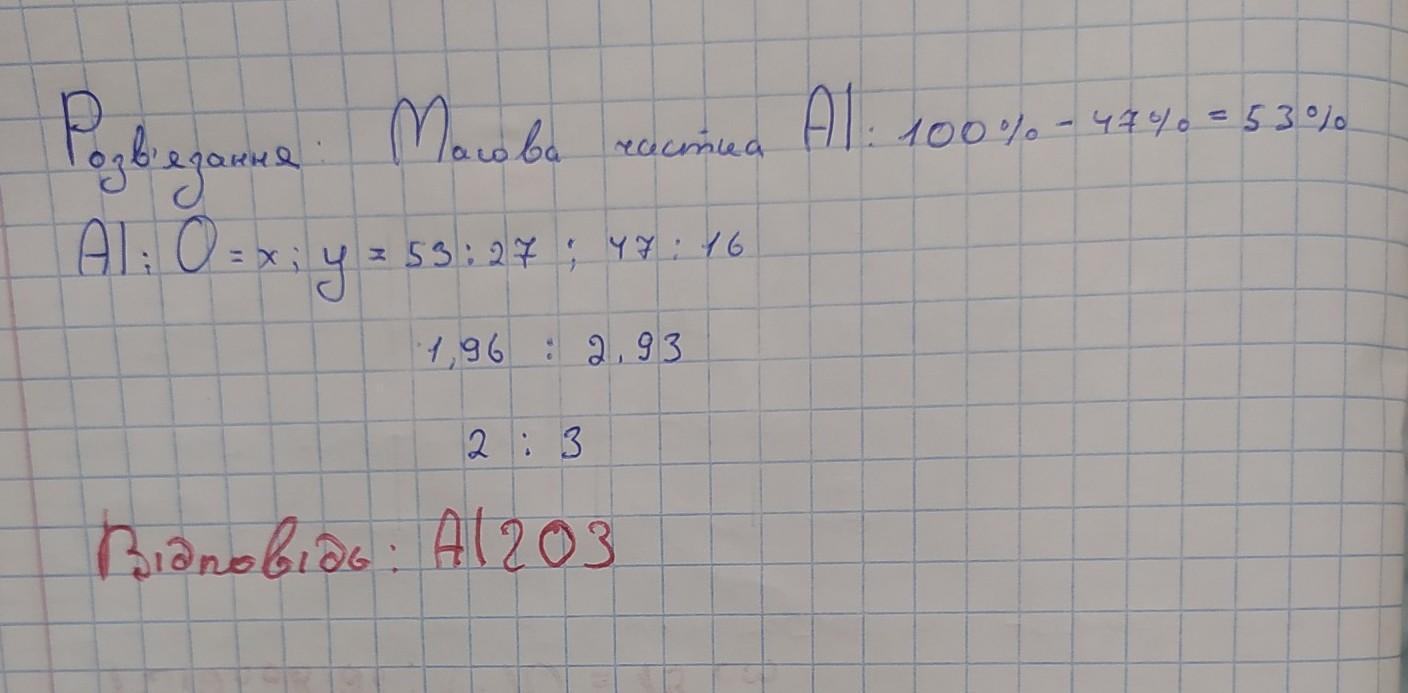 Розв'язання: Масова частка Al: 100% - 47% = 53%
Al : O = x : y = 53 : 27 ; 47 : 16
1,96 : 2,93
2 : 3
Відповідь: Al2O3